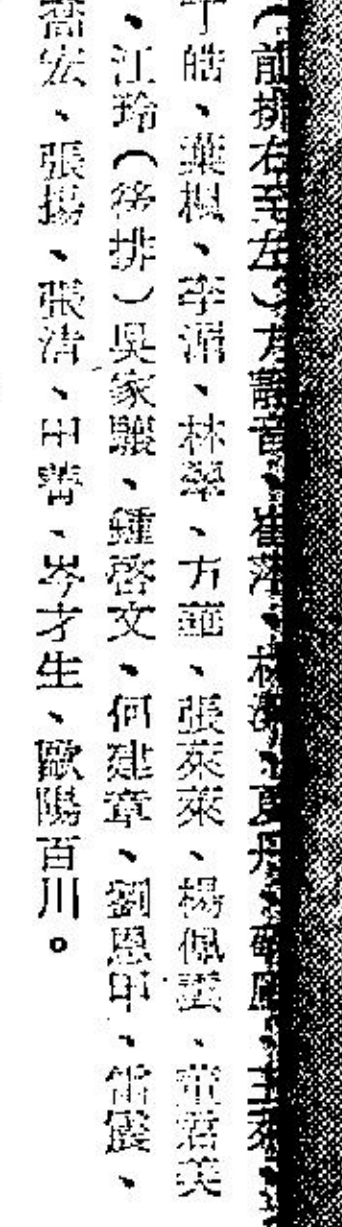 （前排右至左）方靜音、崔萍、林潔、夏丹、蘇鳳、王萊、
丁皓、葉楓、李湄、林翠、方華、張萊萊、楊佩雲、董君美
、江玲（後排）吳家驤、鍾啓文、何建章、劉恩甲、雷震、
喬宏、張揚、張清、田青、岑才生、歐陽百川。